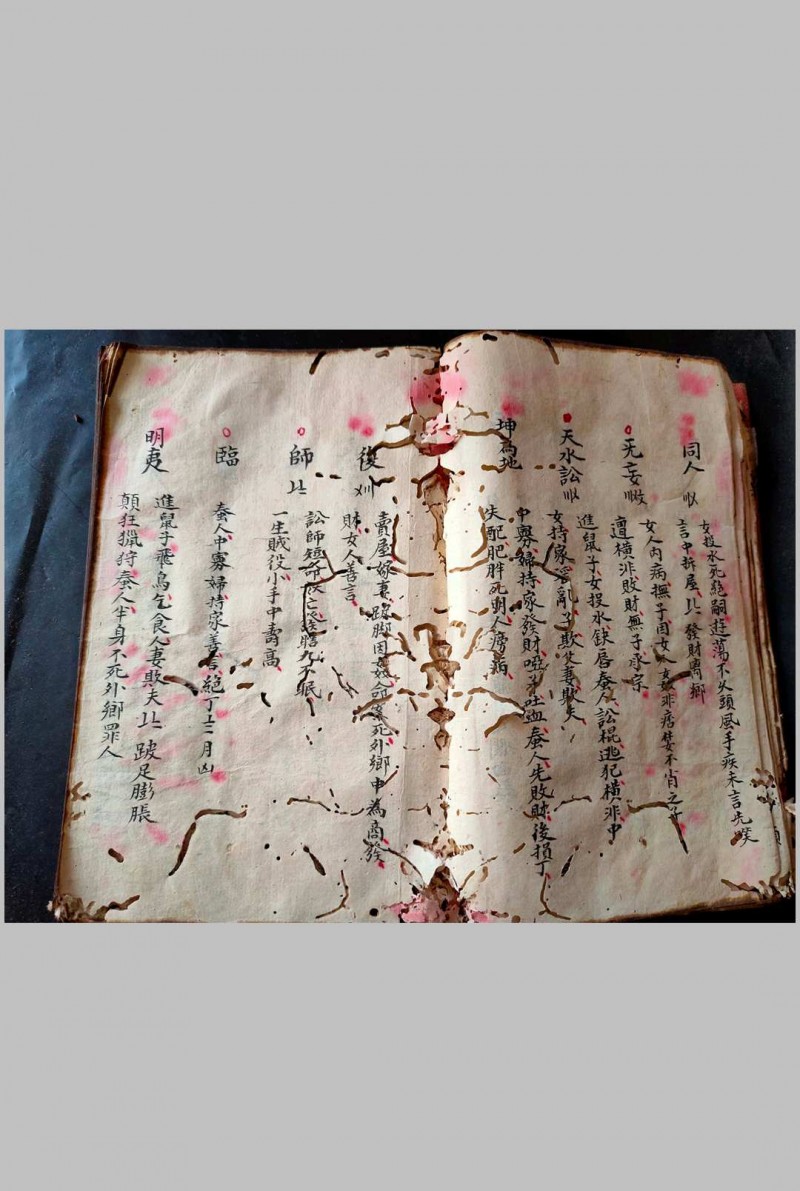 同人
女投水死絕嗣遊蕩不火頭風手疾未言先笑
言中拆屋 發財离鄉
无妄
女人內病撫子因女 非癌 不肖之子
遭橫非敗財無子承宗
天水訟
進鼠子女投水缺唇蚕人訟棍逃犯橫非中
女持家淫亂子欺父妻欺夫
坤為地
中寡婦持家發財啞子吐血蚕人先敗財後損丁
失配肥胖死 人癆病
復
賣屋嫁妻跛脚因姦命案死外鄉中為商發
財女人善言
師
訟師短命 亡 瞎九不眠
一生賊役小手中壽高
臨
蚕人中寡婦持家善言絕丁十二月凶
明夷
進鼠子飛鳥乞食人妻欺夫 跛足膨脹
顛狂獵狩蚕人半身不死外鄉罪人